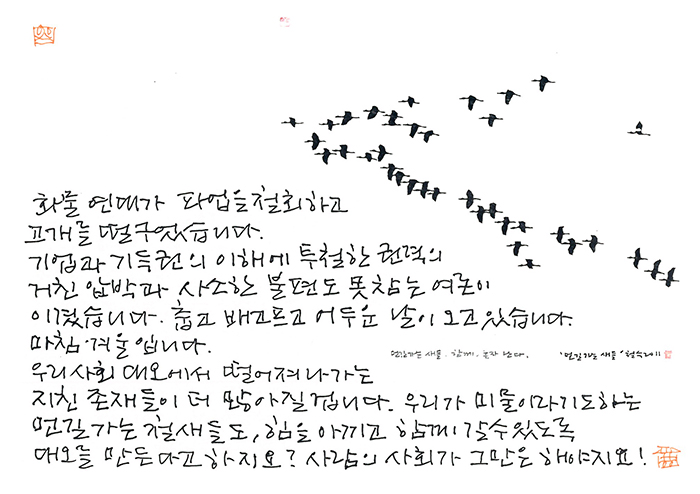 화물 연대가 파업을 철회하고
고개를 떨구었습니다.
기업과 기득권의 이해에 투철한 권력의
거친 압박과 사소한 불편도 못 참는 여론이
이겼습니다. 춥고 배고프고 어두운 날이 오고 있습니다.
마침 겨울입니다.
먼길가는 새들. 함께. 혼자 난다.
'먼길가는 새들'
우리 사회 대오에서 떨어져 나가는
지친 존재들이 더 많아질겁니다. 우리가 미물이라기도하는
먼길 가는 철새들도, 힘을 아끼고 함께 갈 수 있도록
대오를 만든다고 하지요? 사람의 사회가 그만은 해야지요!